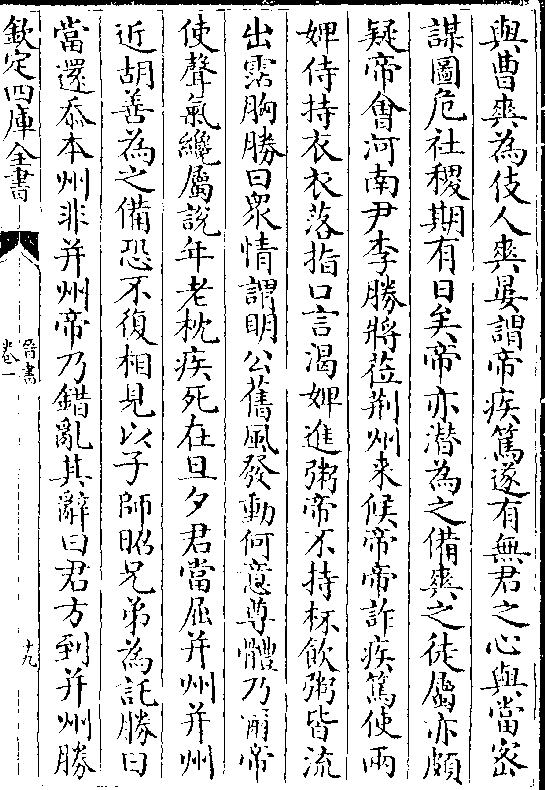 與曹爽為伎人爽晏謂帝疾篤遂有無君之心與當密
謀圖危社稷期有日矣帝亦潛為之備爽之徒屬亦頗
疑帝會河南尹李勝將蒞荆州来候帝帝詐疾篤使兩
婢侍持衣衣落指口言渇婢進粥帝不持杯飲粥皆流
出霑胸勝曰衆情謂明公舊風發動何意尊體乃爾帝
使聲氣纔屬說年老枕疾死在旦夕君當屈并州并州
近胡善為之備恐不復相見以子師昭兄弟為託勝曰
當還忝本州非并州帝乃錯亂其辭曰君方到并州勝
欽定四庫全書
晉書
卷一
十九